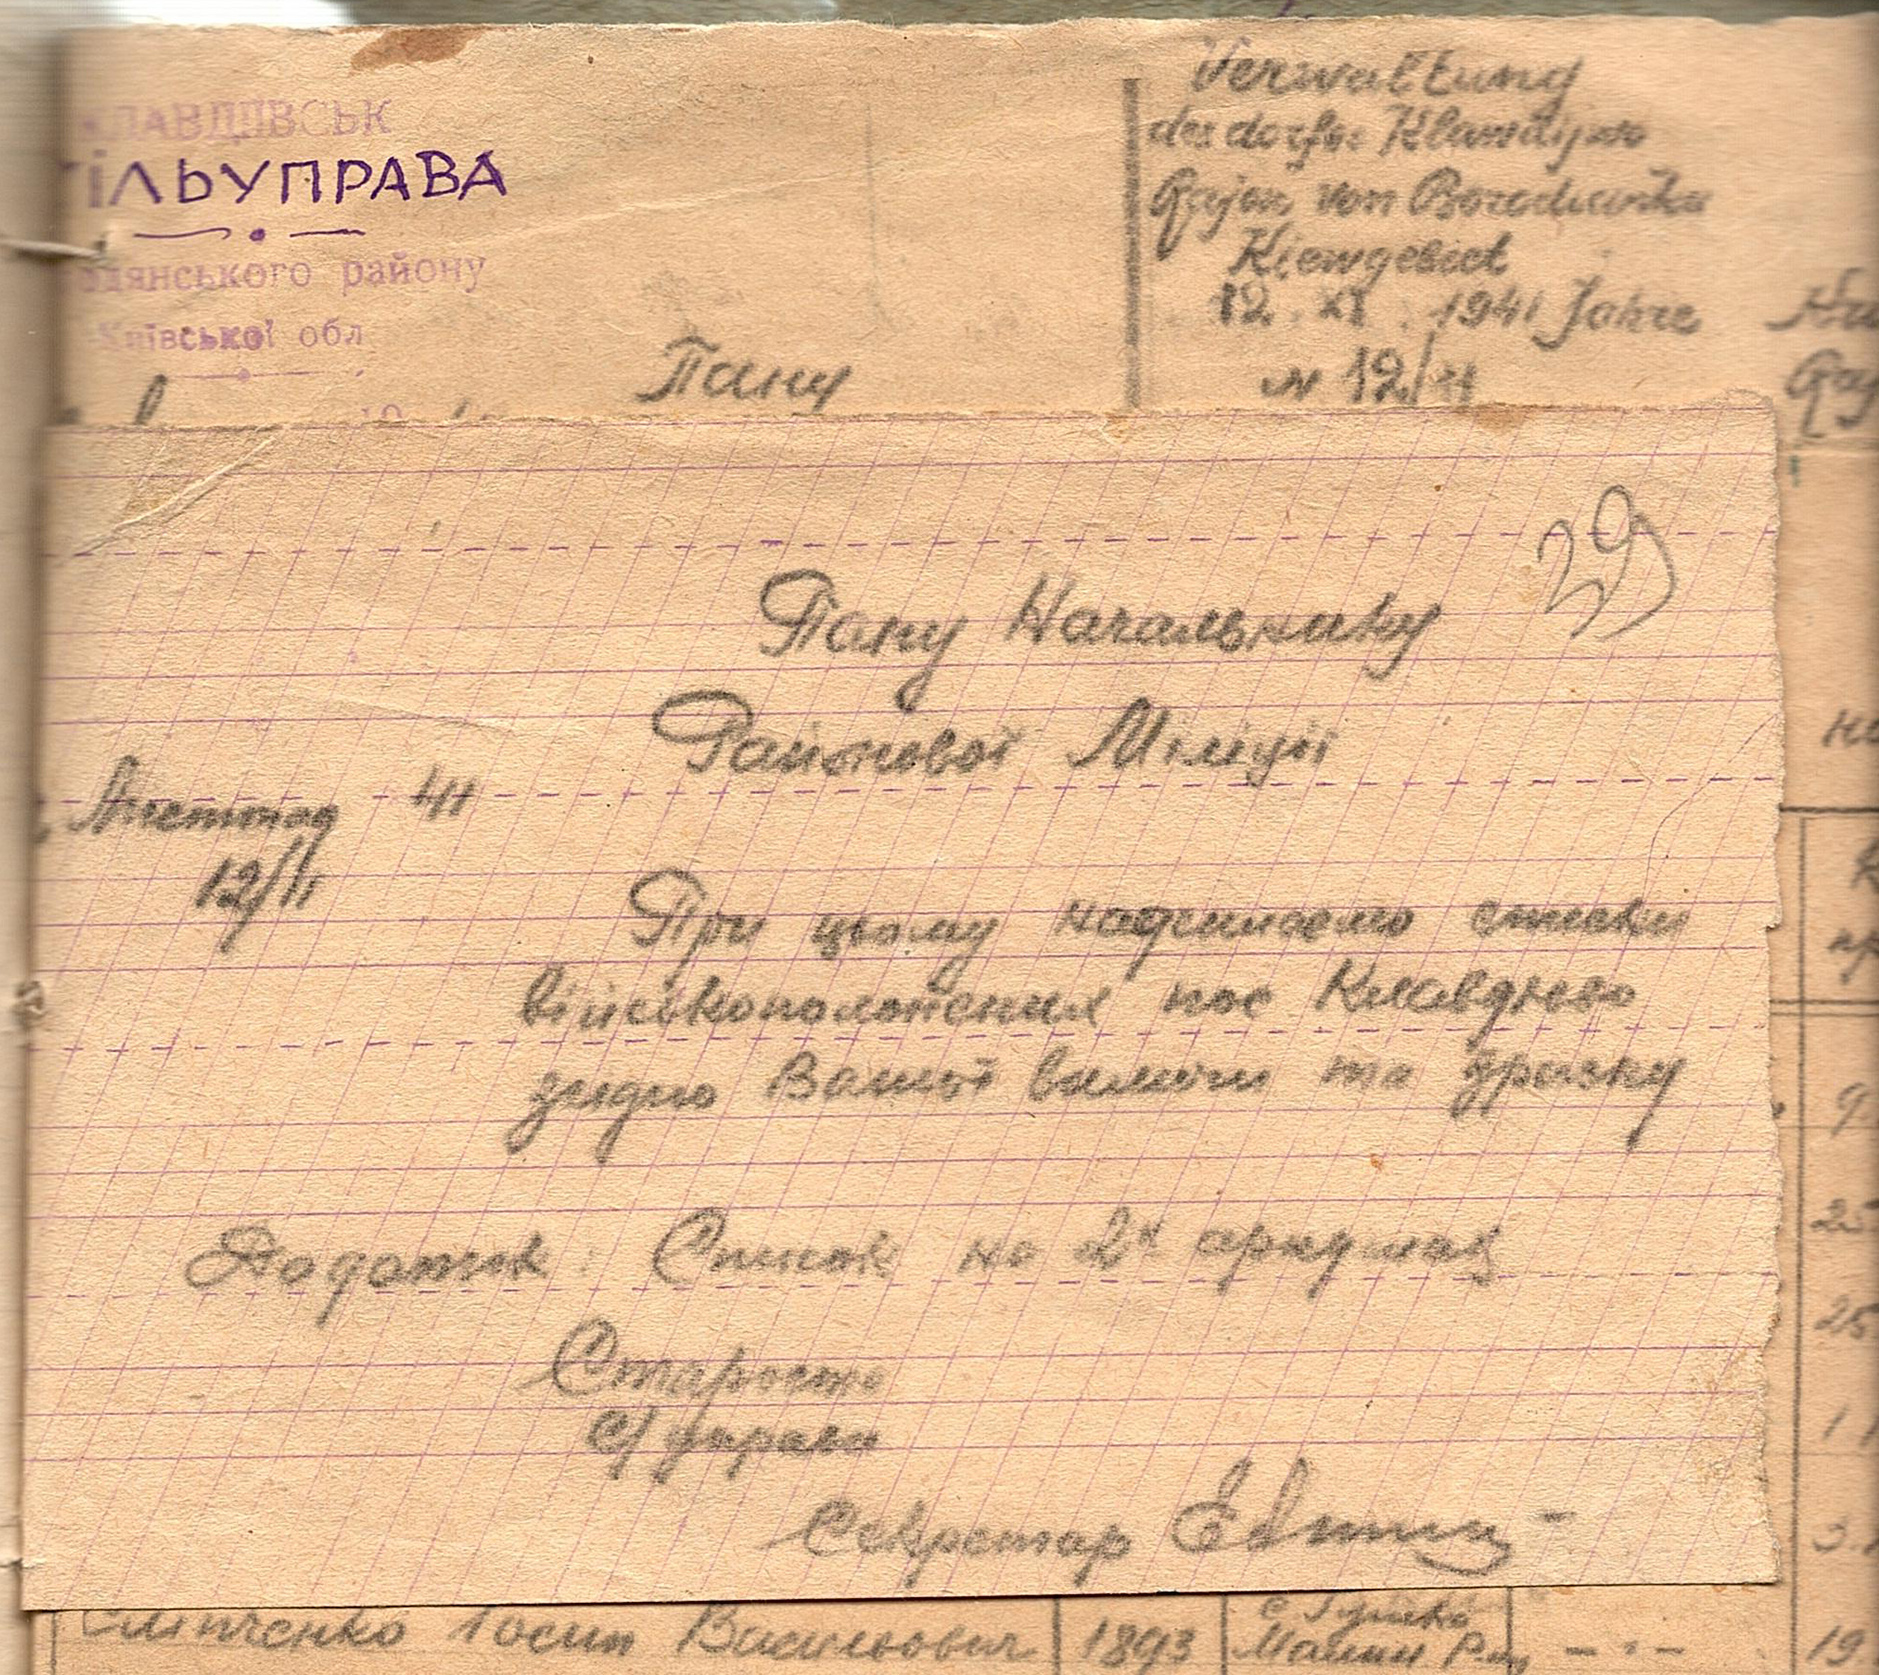 КЛАВДІІВСЬК
СІЛЬУПРАВА
одянського району
Київської обл
Verwaltung
des dorfes Klawdijewo
Rajon von Borodianka
Kiewgebiet
12. XI. 1941 Jahre
N 12/11
Пану
29
Пану Начальнику
Районової Міліції
Листопад 41
12/11
При цьому надсилаємо списки
військополонених пос Клавдієво
згідно Вашої вимоги та зразку
Додаток: Список на 2х аркушах
Староста
с/управи
Секретар
Сліпченко Йосип Васильович 1893 Малин